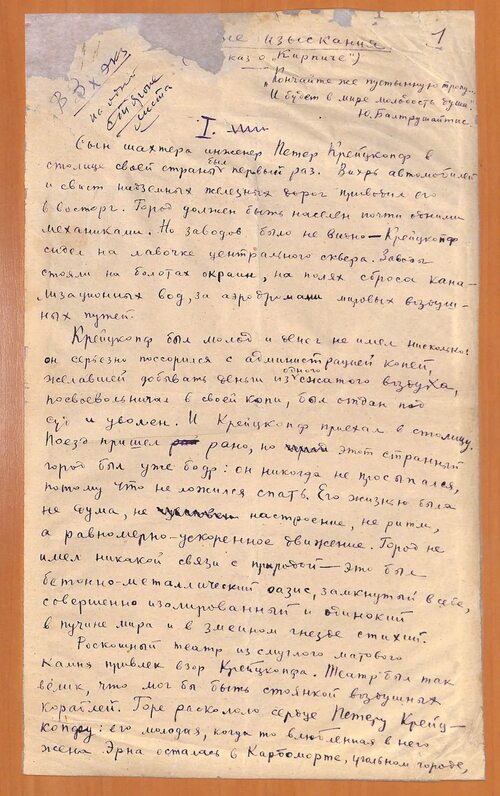 1
изыскания
каз о Кирпиче")
В 3х экз
на одной
стороне
листа
„Кончайте же пустынную тропу...
И будет в мире молодость души"
Ю. Балтрушайтис.
I.
Сын шахтера инженер Петер Крейцкопф в
столице своей страны был первый раз. Вихрь автомобилей
и свист надземных железных дорог приводил его
в восторг. Город должен быть населен почти одними
механиками. Но заводов было не видно – Крейцкопф
сидел на лавочке центрального сквера. Заводы
стояли на болотах окраин, на полях сброса кана-
лизационных вод, за аэродромами мировых воздуш-
ных путей.
Крейцкопф был молод и денег не имел нисколько:
он серьезно поссорился с администрацией копей,
желавшей добывать деньги из одного сжатого воздуха,
посвоевольничал в своей копи, был отдан под
суд и уволен. И Крейцкопф приехал в столицу.
Поезд пришел рано, но этот странный
город был уже бодр: он никогда не просыпался,
потому что не ложился спать. Его жизнью была
не дума, не настроение, не ритм,
а равномерно-ускоренное движение. Город не
имел никакой связи с природой – это был
бетонно-металлический оазис, замкнутый в себе,
совершенно изолированный и одинокий
в пучине мира и в змеином гнезде стихий.
Роскошный театр из смуглого матового
камня привлек взор Крейцкопфа. Театр был так
велик, что мог бы быть стоянкой воздушных
кораблей. Горе раскололо сердце Петеру Крейц-
копфу: его молодая, когда то влюбленная в него
жена Эрна осталась в Карбоморте, угольном городе,